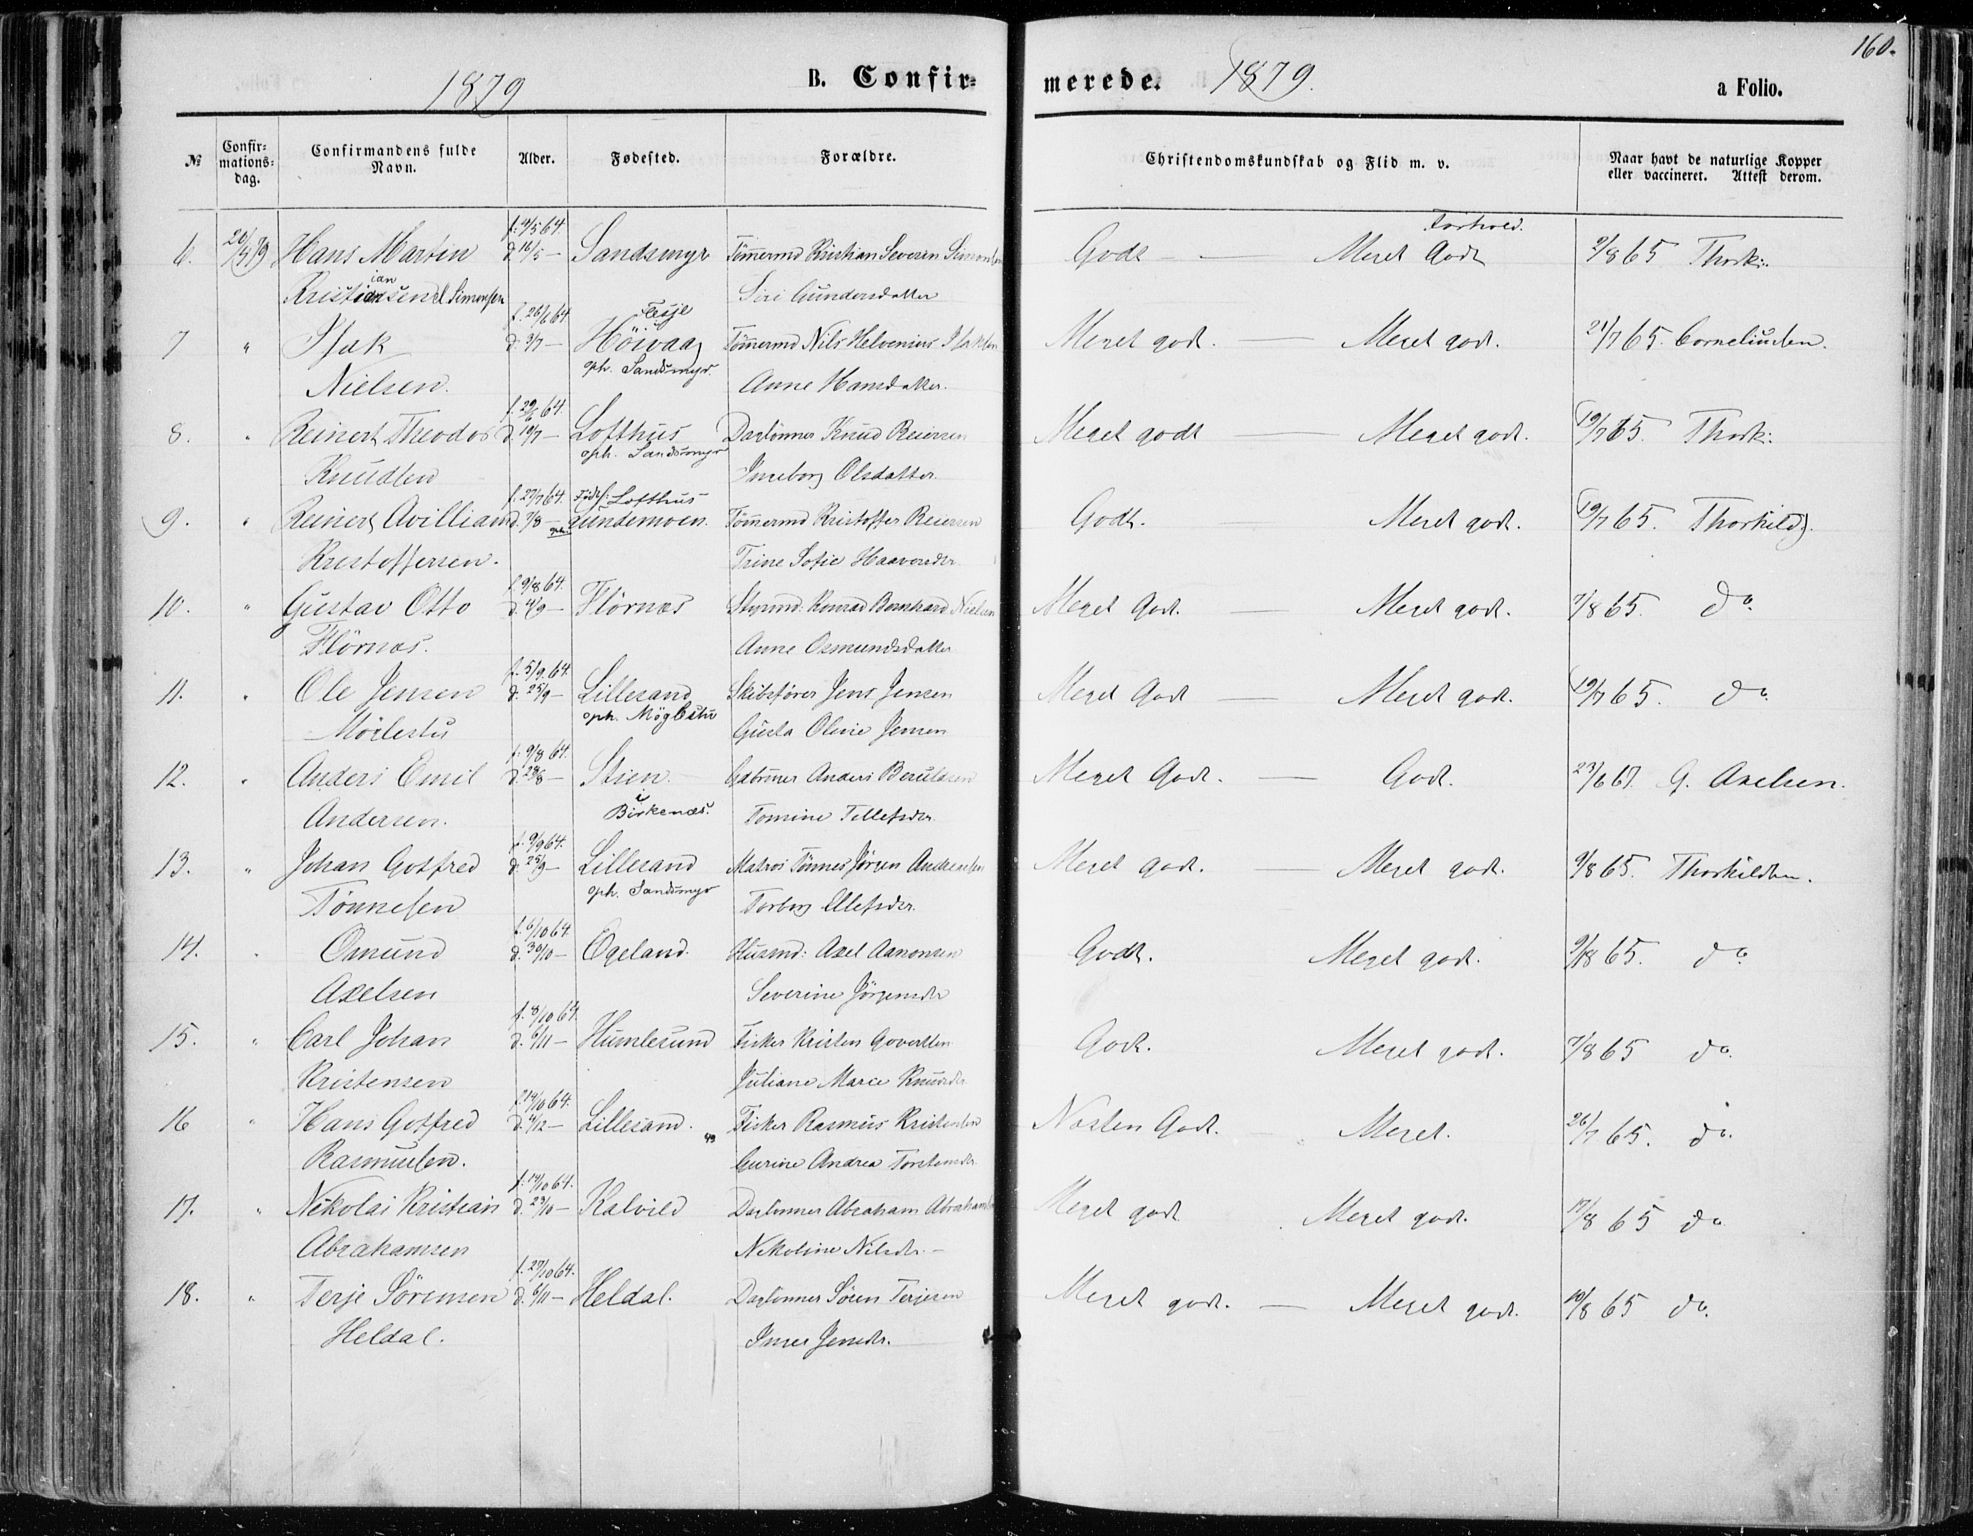 160.
1879 B. Confir= merede. 1879. a Folio.
№ Confir=mations=dag. Confirmandens fulde Navn. Alder. Fødested. Forældre. Christendomskundskab og Flid m. v. Naar havt de naturlige Kopper eller vaccineret. Attest derom.
f. 4/5 64. Forhold.
6. 20/4 79 Hans Martin d. 16/5 — Sandsmyr Tömermd Kristian Severin Simonsen Godt — Meget Godt 2/8 65 Thork:
Kristiansen Simonsen Siri Gundersdatter
f. 26/6 64.
7 " Isak d. 3/7 — Höivaag Tömermd Nils Helvenius Isaksen Meget godt. — Meget godt. 21/7 65. Corneliussen.
Nielsen. oph. Sandsmyr. Anne Hansdatter.
f. 29/6 64.
8. " Reinert Theodor d. 19/7 — Lofthus Daglönner Knud Reiersen Meget godt — Meget godt. 19/7 65. Thork:
Knudsen oph. Sandsmyr Ingeborg Olsdatter
f. 27/7 64. Födt: Lofthus
9. " Reinert Avillian d. 7/8 — Tömermd Kristoffer Reiersen Godt. Meget godt. 19/7 65. Thorkild
Kristoffersen. Trine Sofie Haavorsdtr
f. 9/8 64.
10. " Gustav Otto d. 4/9 — Flörnæs Styrmd: Konrad Bernhard Nielsen Meget Godt. — Meget godt. 7/8 65. do
Flörnæs. Anne Osmundsdatter
f. 5/9 64.
11. " Ole Jensen d. 25/9 — Lillesand Skibsförer Jens Jensen Meget Godt — Meget godt. 19/7 65. do
Möglestu oph. Möglestu Gusta Oline Jensen
f. 9/8 64.
12. " Anders Emil d. 28/8 — Stien Anders Beruldsen Meget Godt. — Godt. 23/6 67. G. Axelsen.
Andersen. i Birkenæs. Tomine Tellefsdtr
f. 9/9 64.
13. " Johan Gotfred d. 25/9 — Lillesand Matros Tönnes Jörgen Andreassen Meget godt. — Meget godt. 9/8 65. Thorkildsen.
Tönnesen oph. Sandsmyr Torborg Ellefsdtr.
f. 6/10 64.
14. " Osmund d. 30/10 — Ögeland. Husmd: Axel Aanonsen Godt. Meget godt. 9/8 65. do
Axelsen Severine Jörgensdtr
f. 8/10 64.
15. " Carl Johan d. 6/11 — Humlesund Fisker Kristen Govertsen Godt. Meget godt. 7/8 65 do
Kristensen Juliane Marce Knudsdtr
f. 14/10 64.
16 " Hans Gotfred d. 4/12 — Lillesand. Fisker Rasmus Kristensen Næsten Godt. Meget. 26/7 65. do
Rasmussen. Gurine Andrea Torstensdtr
f. 14/10 64.
17. " Nikolai Kristian d. 23/10 — Kalvild Daglönner Abraham Abrahamsen Meget godt Meget godt. 17/8 65 do
Abrahamsen Nikoline Nilsdtr. —
f. 27/10 64.
18. " Terje Sörensen d. 6/11 — Heldal. Daglönner Sören Terjesen Meget godt. — Meget godt. 10/8 65 do
Heldal. Inger Jensdtr.